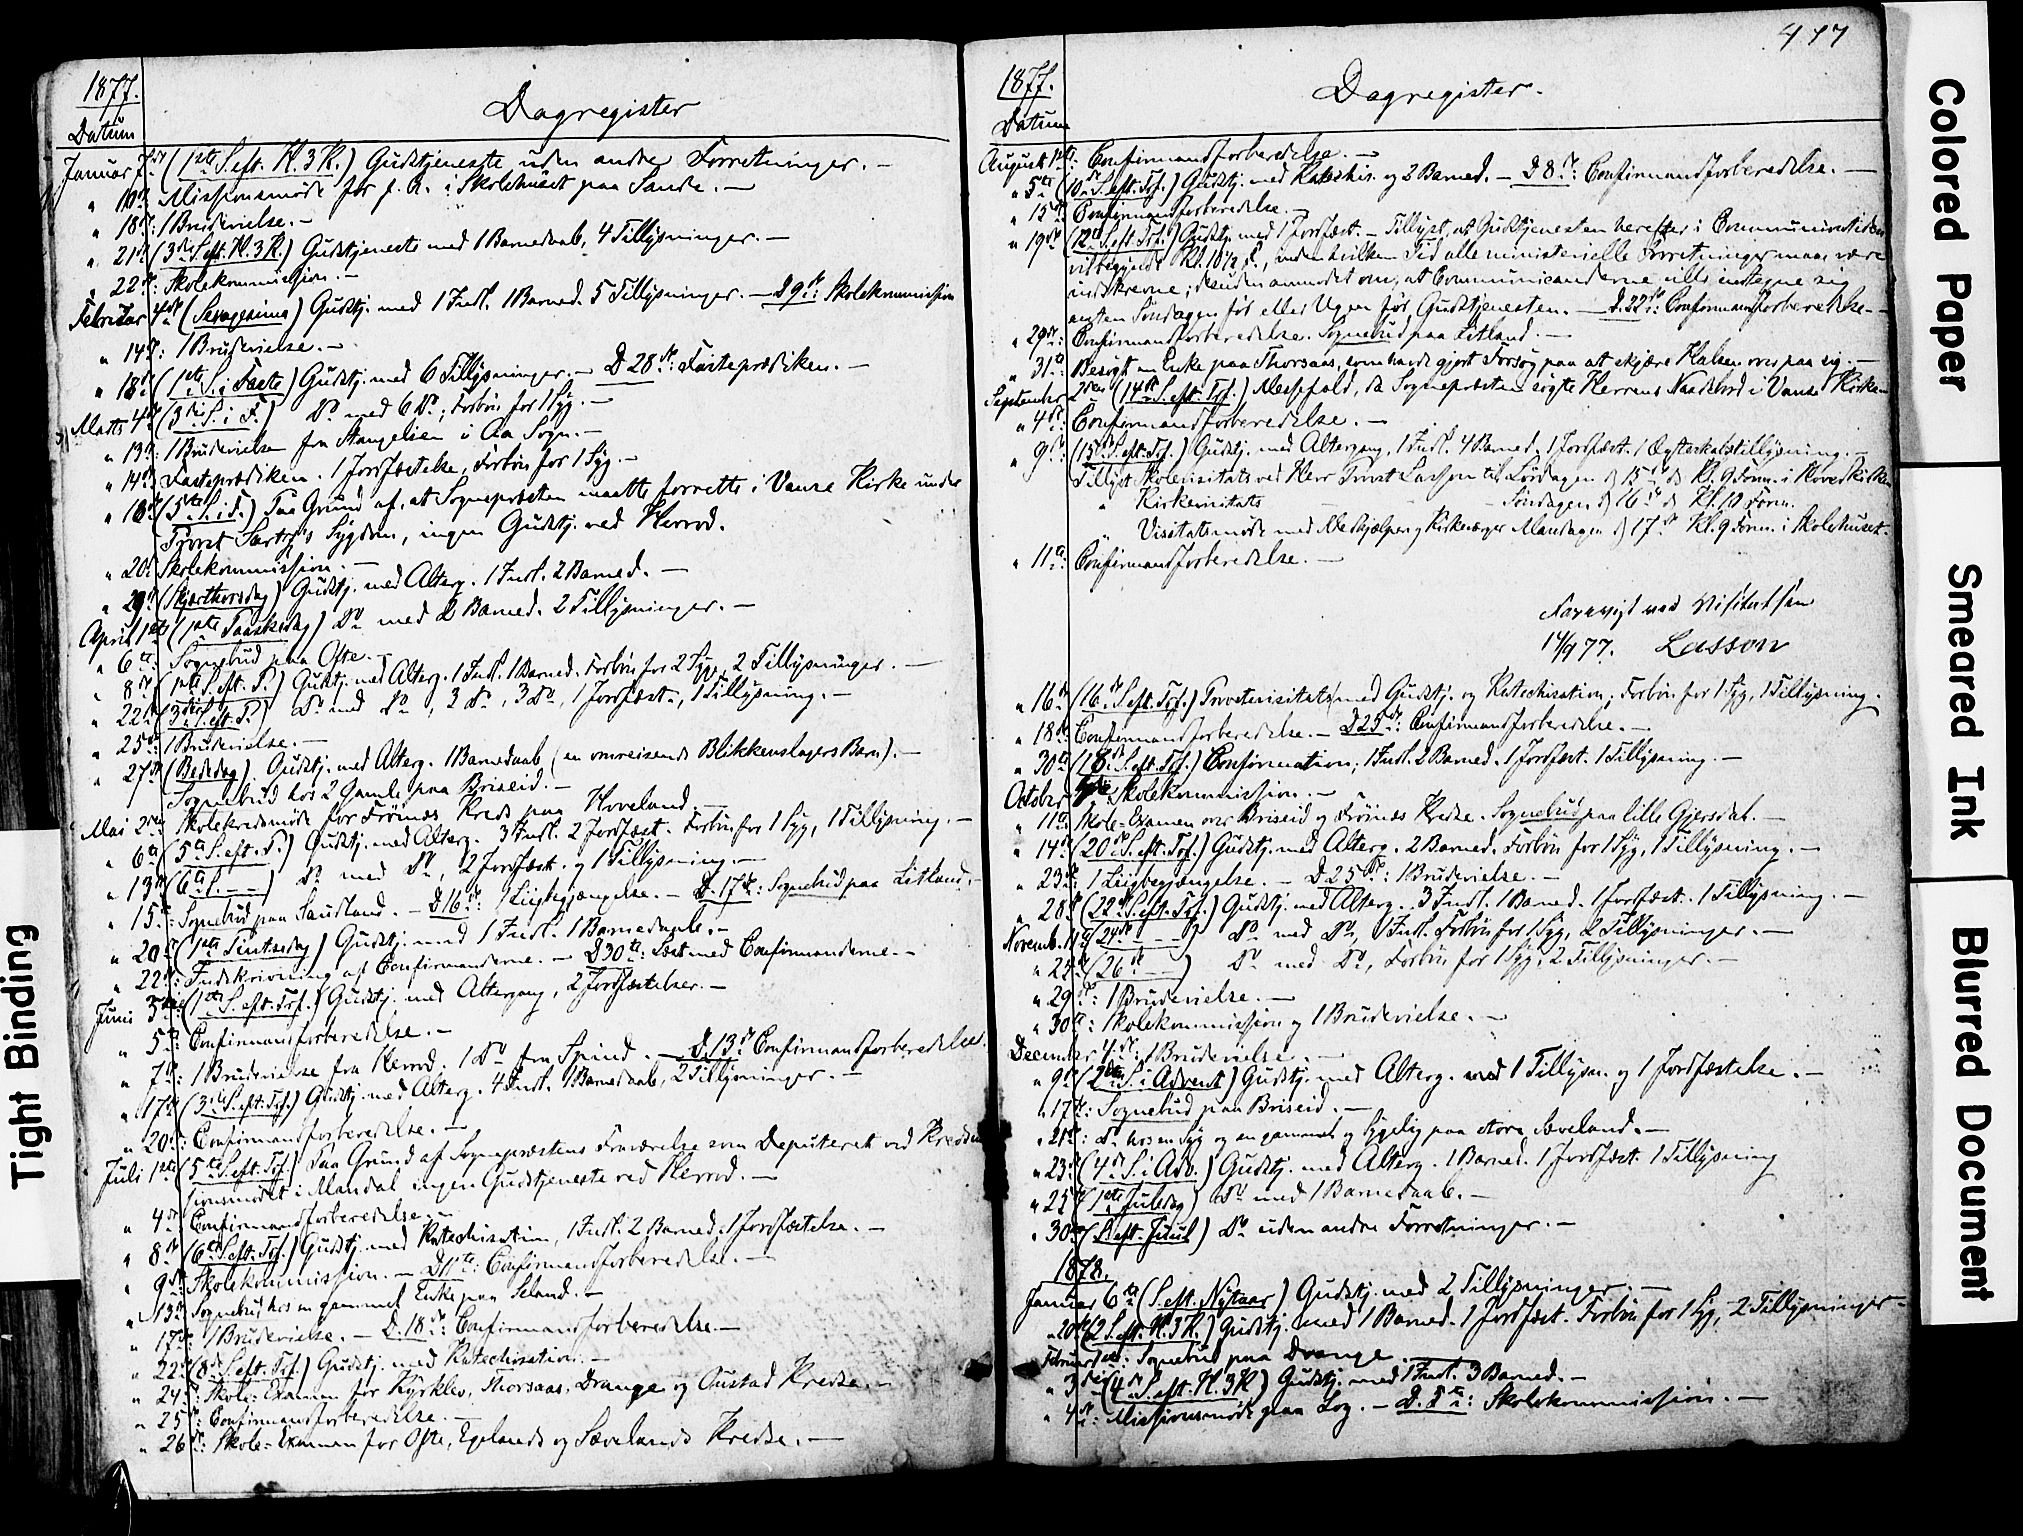 1877.
Dagregister
Datum
Januar 7de (1ste S. eft. H. 3 K.) Gudstjeneste uden andre Forretninger. —
" 10de Missionsmøde for f. A. i Skolehuset paa Sande. —
" 18de: 1 Brudevielse. —
" 21de (3die S. eft. H. 3 K.) Gudstjeneste med 1 Barnedaab, 4 Tillysninger. —
" 22de: Skolekommission. —
Februar 4de (Sexagesima) Gudstj. med 1 Indl. 1 Barned. 5 Tillysninger. — D. 9de: Skolekommission
" 14de: 1 Brudevielse. —
" 18de (1ste S. i Faste) Gudstj. med 6 Tillysninger. — D. 28de: Fasteprædiken. —
Marts 4de (3die S. i F.) Do med 6 Do; Forbøn for 1 Syg. —
" 13de: 1 Brudevielse fra Stangelien i Aa Sogn. —
" 14de: Fasteprædiken. 1 Jordfæstelse, Forbøn for 1 Syg. —
" 18de (5te S. i F.) Paa Grund af, at Sognepræsten maatte forrette i Vanse Kirke under
Provst Sygdom, ingen Gudstj. ved Herrod.
" 20de Skolekommission. —
" 29de (Skjærthorsdag) Gudstj. med Alterg. 1 Indl. 2 Barned. —
April 1ste (1ste Paaskedag) Do med 2 Barned. 2 Tillysninger. —
" 6te: Sognebud paa Ofte. —
" 8de (1ste S. eft. P.) Gudstj. med Alterg. 1 Indl. 1 Barned. Forbøn for 2 Syge, 2 Tillysninger. —
" 22de (3die S. eft. P.) Do med Do, 3 Do, 3 Do, 1 Jordfæst., 1 Tillysning. —
" 25de: 1 Brudevielse. —
" 27de (Bededag). Gudstj. med Alterg. 1 Barnedaab (en omreisende Blikkenslagers Barn). —
Sognebud hos 2 Gamle paa Briseid. —
Mai 2den Skolekredsmøde for Frøinæs Kreds paa Hoveland. —
" 6te (5te S. eft. P.) Gudstj. med Alterg. 3 Indl. 2 Jordfæst. Forbøn for 1 Syg, 1 Tillysning. —
" 13de (6te S. — —) Do med Do, 2 Jordfæst. og 1 Tillysning. —
" 15de: Sognebud paa Saudland. — D. 16de: 1 Liigbegjængelse. — D. 17de: Sognebud paa Litland. —
" 20de (1ste Pintsedag) Gudstj. med 1 Indl. 1 Barnedaab. —
" 22de: Indskrivning af Confirmanderne. — D. 30te: Læst med Confirmanderne. —
Juni 3die: (1ste S. eft. Trf.) Gudstj. med Altergang, 2 Jordfæstelser. —
" 5te: Confirmandforberedelse. —
" 7de: 1 Brudevielse fra Herrod. 1 Do fra Spind. — D. 13de Confirmandforberedelse.
" 17de (3die S. eft. Trf.) Gudstj. med Alterg. 4 Indl. 1 Barnedaab, 2 Tillysninger. —
" 20de: Confirmandforberedelse. —
Juli 1ste (5te S. eft. Trf.) Paa Grund af Sognepræstens Fraværelse som Deputeret ved Kreds
sionsmødet i Mandal ingen Gudstjeneste ved Herrod. —
" 4de Confirmandforberedelse. —
" 8de (6te S. eft. Trf.) Gudstj. med Katechisation, 1 Indl. 2 Barned. 1 Jordfæstelse. —
" 9de: Skolekommission. — D. 11te: Confirmandforberedelse. —
" 13de Sognebud hos en gammel Enke paa Seland. —
" 17de: 1 Brudevielse. — D. 18de: Confirmandforberedelse. —
" 22de (8de S. eft. Trf.) Gudstj. med Katechisation. —
" 24de: Skole-Examen for Kyrklev, Thorsaas, Drange og Oustad Kredse. —
" 25de: Confirmandforberedelse. —
" 26de: Skole-Examen for Ofte, Egelands og Sævelands Kredse. —
477
1877.
Dagregister.
Datum
August 1ste: Confirmandforberedelse. —
" 5te (10de S. eft. Trf.) Gudstj. med Katechis. og 2 Barned. — D. 8de: Confirmandforberedelse. —
" 15de Confirmandforberedelse. —
" 19de (12te S. eft. Trf.) Gudstj. med 1 Jordfæst. — Tillyst, at Gudstjenesten herefter i Communiontiden
vil begynde Kl. 10½ , inden hvilken Tid alle ministerielle Forretninger maa være
indskrevne; desuden anmodet om, at Communicanderne ville indtegne sig
enten Søndagen før eller Ugen før Gudstjenesten. — D. 22de: Confirmandforberedelse. —
" 29de: Confirmandforberedelse. Sognebud paa Litland. —
" 31te: Besøgt en Enke paa Thorsaas, som havde gjort Forsøg paa at skjære Halsen over paa sig. —
September 2den (14de S. eft. Trf.) Messefald, da Sognepræsten søgte Herrens Naadebord i Vanse Kirke. —
" 4de: Confirmandforberedelse. —
" 9de (15de S. eft. Trf.) Gudstj. med Altergang, 1 Indl. 4 Barned. 1 Jordfæst. 1 Ægteskabstillysning. —
Tillyst Skolevisitats ved Herr Provst Lassen til Lørdagen d. 15de ds Kl. 9 Form. i Hovedkirken
" Kirkevisitats — Søndagen d. 16de ds Kl. 10 Form.
" Visitatsmøde med Medhjælper og Kirkeværger Mandagen d. 17de Kl. 9 Form. i Skolehuset. —
" 11te: Confirmandforberedelse. —
Forevist ved Visitatsen
14/9 77. Lasson
" 16de (16de S. eft. Trf.) Provstevisitats med Gudstj. og Katechisation; Forbøn for 1 Syg, 1 Tillysning. —
" 18de: Confirmandforberedelse. — D. 25de: Confirmandforberedelse. —
" 30te (18de S. eft. Trf.) Confirmation; 1 Indl. 2 Barned. 1 Jordfæst. 1 Tillysning. —
October Skolekommission. —
" 11te Skole-Examen over Briseid og Frøinæs Kredse. Sognebud paa lille Gjersdal. —
" 14de (20de S. eft. Trf.) Gudstj. med Alterg. 2 Barned. Forbøn for 1 Syg, 1 Tillysning. —
" 23de: 1 Leigbegjængelse. — D. 25de: 1 Brudevielse. —
" 28de (22de S. eft. Trf.) Gudstj. med Alterg. 3 Indl. 1 Barned. 1 Jordfæst. 1 Tillysning. —
Novemb. 11te (24de — —) Do med Do, 1 Indl. Forbøn for 1 Syg, 2 Tillysninger. —
" 25de (26de — —) Do med Do, Forbøn for 1 Syg, 2 Tillysninger. —
" 29de: 1 Brudevielse. —
" 30te: Skolekommission og 1 Brudevielse. —
December 4de: 1 Brudevielse. —
" 9de (2den S. i Advent) Gudstj. med Alterg. med 1 Tillysn. og 1 Jordfæstelse. —
" 17de: Sognebud paa Briseid. —
" 21de: Do hos en Syg og en gammel og sygelig paa store Sæveland. —
" 23de (4de S. i Adv.) Gudstj. med Alterg. 1 Barned. 1 Jordfæst. 1 Tillysning
" 25de (1ste Juledag) Do med 1 Barnedaab. —
" 30te (S. eft. Juul) Do uden andre Forretninger. —
1878.
Januar 6te (S. eft. Nytaar) Gudstj. med 2 Tillysninger. —
" 20de (2 S. eft. H. 3 K.) Gudstj. med 1 Barned. 1 Jordfæst. Forbøn for 1 Syg, 2 Tillysninger —
Februar 1ste: Sognebud paa Drange.
" 3die (4de S. eft. H. 3 K) Gudstj. med 1 Indl. 3 Barned. —
" 4de: Missionsmøde paa Log. — D. 5te: Skolekommission. —
Tight Binding
Colored Paper
Smeared Ink
Blurred Document